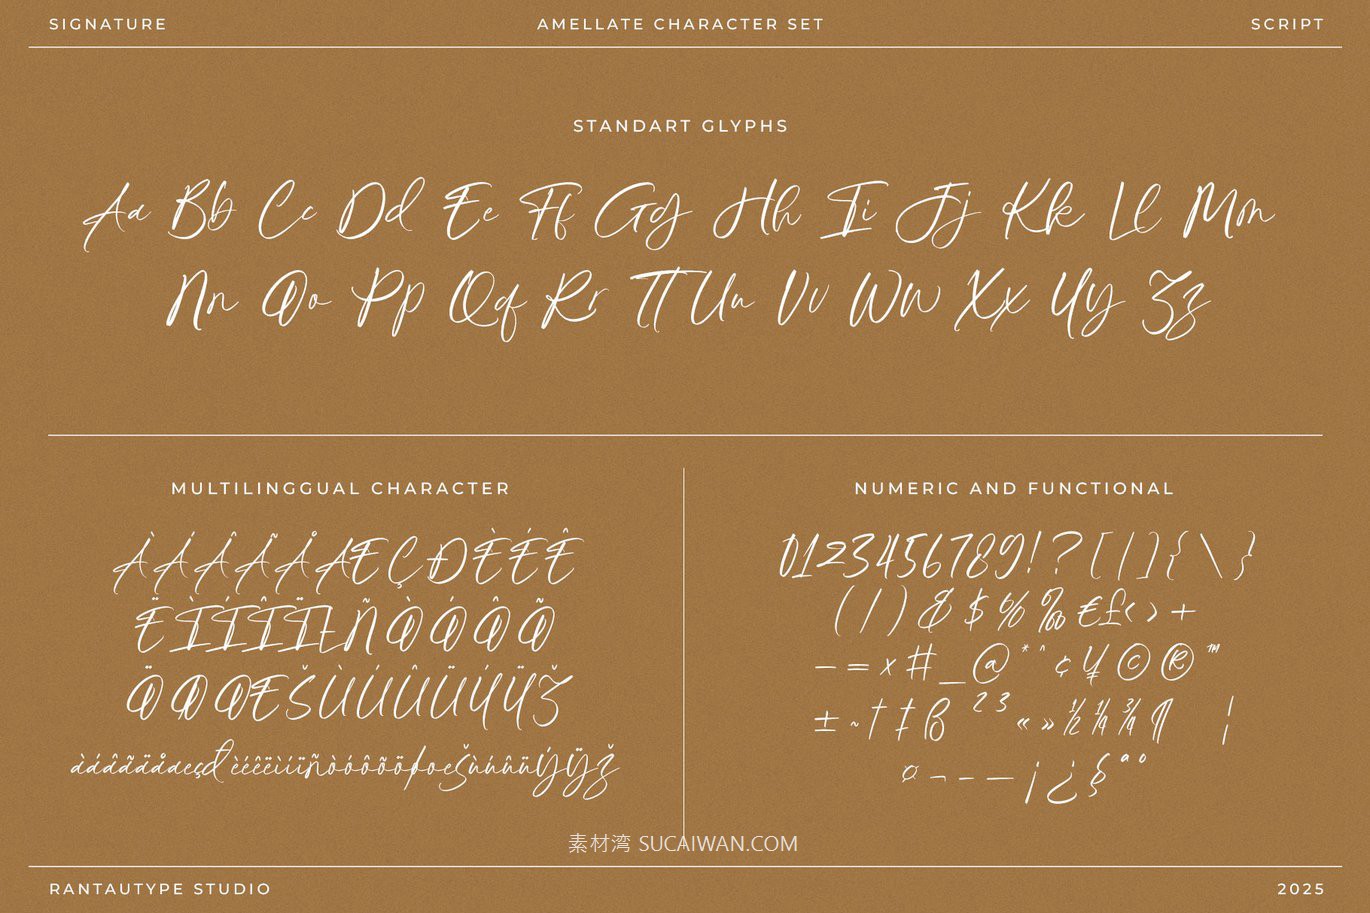 SIGNATURE AMELLATE CHARACTER SET SCRIPT
STANDART GLYPHS
Aa Bb Cc Dd Ee Ff Gg Hh Ii Jj Kk Ll Mm
Nn Oo Pp Qq Rr Tt Uu Vv Ww Xx Yy Zz
MULTILINGGUAL CHARACTER
ÀÁÂÃÅÆÇÐÈÉÊ
ËÌÍÎÏŁÑÒÓÔÕ
ÖØŒŠÙÚÛÜÝŸŽ
àáâãäåæçđèéêëìíïñòóôõöøœšùúûüýÿž
NUMERIC AND FUNCTIONAL
0123456789!?[|]{\}
(/)&$%‰€£‹›+
−=×#_@*^¢¥©®™
±~†‡ß²³«»½¼¾¶¦
¤¬-—¡¿§ªº
素材湾 SUCAIWAN.COM
RANTAUTYPE STUDIO 2025